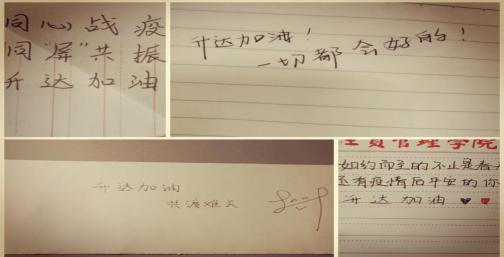 同心战疫
同"屏"共振
升达加油
升达加油!
一切都会好的!
升达加油
共渡难关
工贸管理学院
如约而至的不止是春
还有疫情后平安的你
升达加油